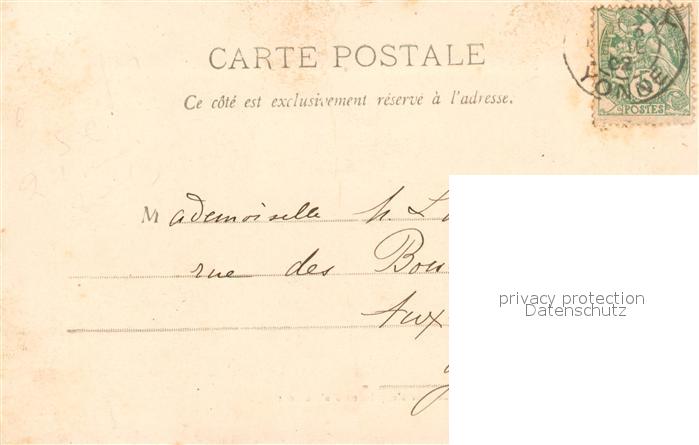 CARTE POSTALE
Ce côté est exclusivement réservé à l'adresse.
YONNE
5
POSTES
Mademoiselle
rue des
privacy protection
Datenschutz